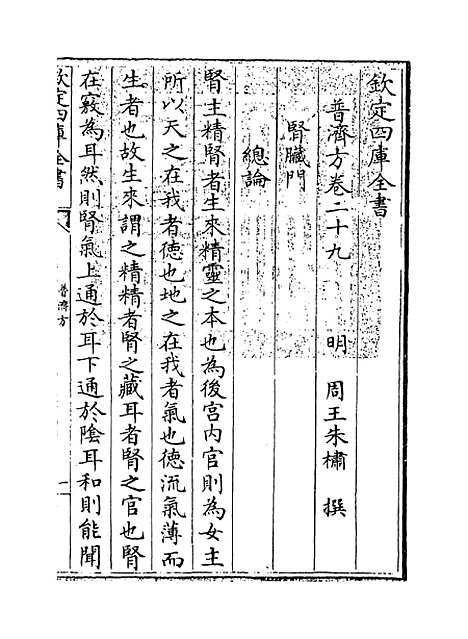 欽定四庫全書
普濟方卷二十九
明 周王朱橚 撰
腎臟門
總論
腎主精腎者生來精靈之本也為後宮内官則為女主
所以天之在我者徳也地之在我者氣也徳流氣薄而
生者也故生來謂之精精者腎之藏耳者腎之官也腎
在竅為耳然則腎氣上通於耳下通於陰耳和則能聞
欽定四庫全書
普濟方
一